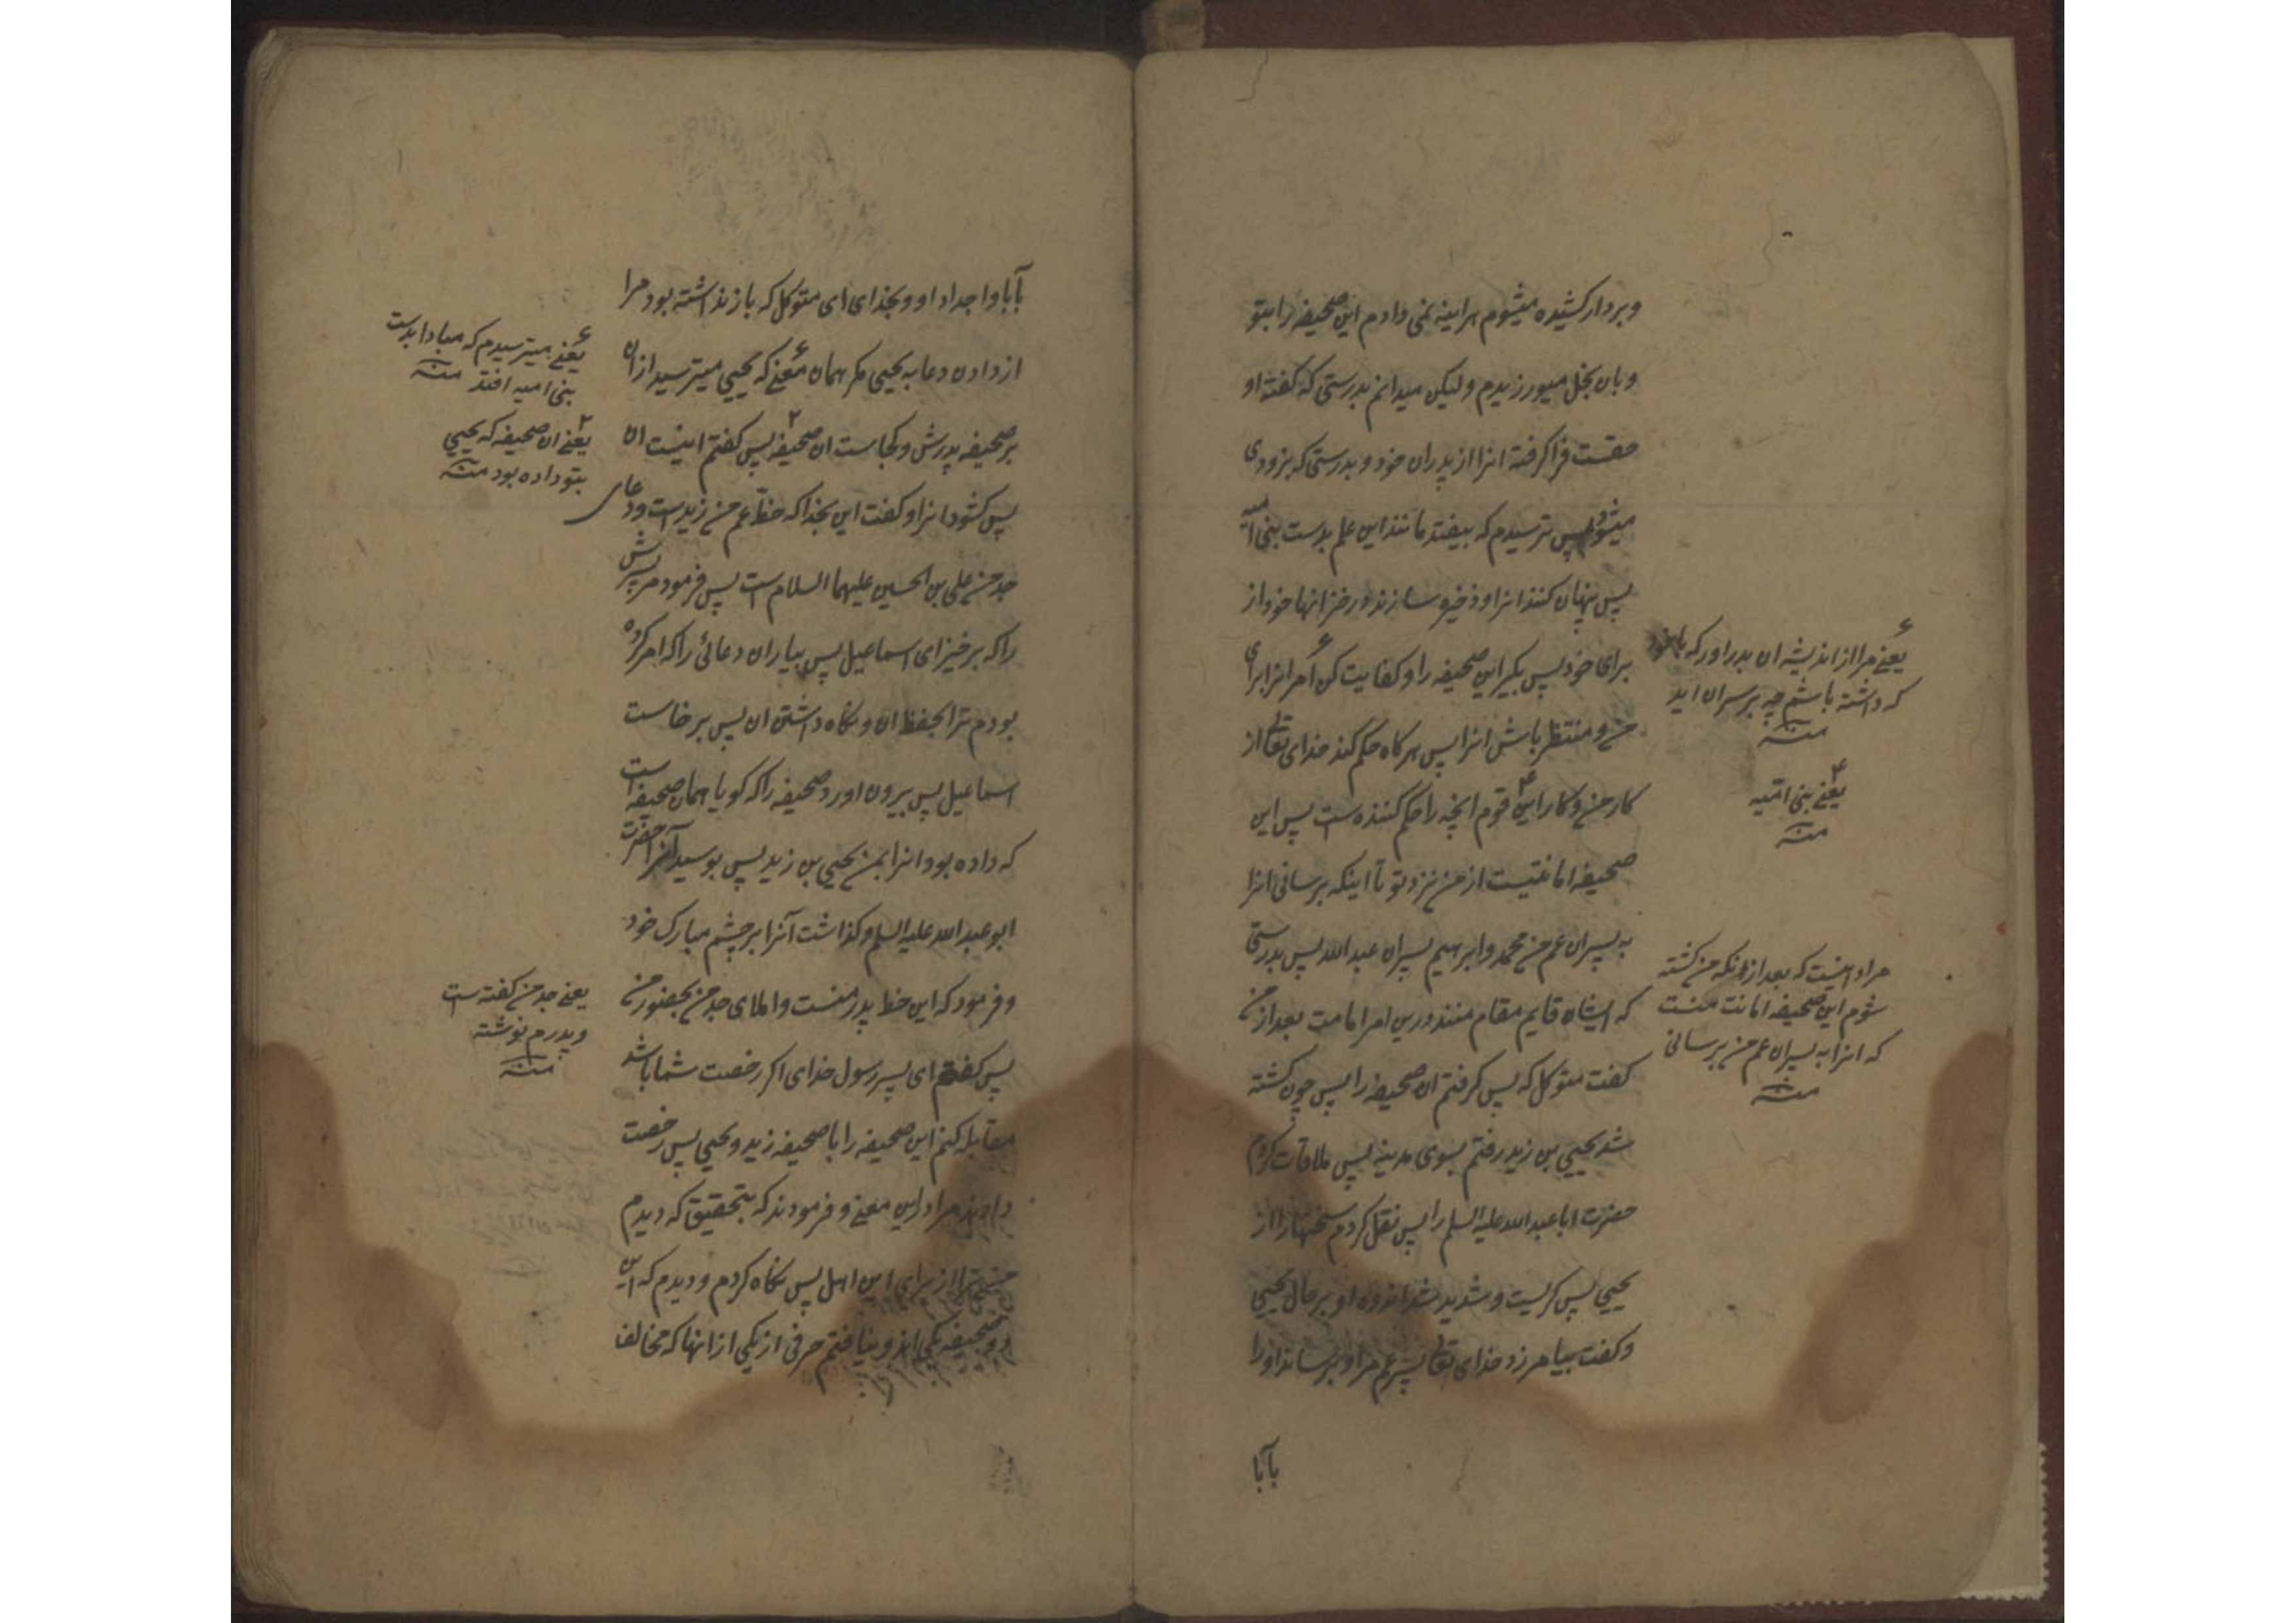 وبردار کشیده میشوم هراینه نمی دادم این صحیفه را بتو
وبان بخل میورزیدم ولیکن میدانم بدرستی که کفته او
حقست فرا کرفته انرا از پدران خود و بدرستی که بزودی
میشود پس ترسیدم که بیفتد مانند این علم بدست بنی امیه
پس پنهان کنند انرا و ذخیره سازند در خزانها خود از
برای خود پس بکیر این صحیفه را و کفایت کن امر انرا برای
من و منتظر باش انرا پس هرکاه حکم کند خدای تعالی از
کار من و کار این قوم انچه را حکم کننده است پس این
صحیفه امانتیست از من نزد تو تا اینکه برسانی انرا
به پسران عم من محمد و ابرهیم پسران عبد الله پس بدرستی
که ایشان قایم مقام منند درین امر امامت بعد از من
کفت متوکل که پس کرفتم ان صحیفه را پس چون کشته
شد یحیی بن زید رفتم بسوی مدینه پس ملاقات کردم
حضرت ابا عبد الله علیه السلم را پس نقل کردم سخنها را از
یحیی پس کریست و شدید شد اندوه او بر حال یحیی
و کفت بیامرزد خدای تعالی پسر عم مرا و برساند او را
بآبا
یعنی مرا از اندیشه ان بدر اور که باخود
که داشته باشم چه بر سر ان اید
منه
یعنی بنی امیه
منه
مراد اینست که بعد از انکه من کشته
شوم این صحیفه امانت منست
که انرا به پسران عم من برسانی
منه
بآبا واجداد او و بخدای ای متوکل که باز نداشته بود مرا
از دادن دعا به یحیی مکر همان معنی که یحیی میترسید از ان
بر صحیفه پدرش و کجاست ان صحیفه پس کفتم اینست ان
پس کشود انرا و کفت این بخدا که خط عم من زید است و دعای
جد من علی بن الحسین علیهما السلام است پس فرمود مر پسرش
را که برخیز ای اسماعیل پس بیار ان دعائی را که امر کرده
بودم ترا بحفظ ان و نکاه داشتن ان پس برخاست
اسماعیل پس بیرون اورد صحیفه را که کویا همان صحیفه است
که داده بود انرا بمن یحیی بن زید پس بوسید آنرا حضرت
ابو عبد الله علیه السلم و کذاشت آنرا بر چشم مبارک خود
و فرمود که این خط پدر منست و املای جد من بحضور من
پس کفتم ای پسر رسول خدای اکر رخصت شما باشد
مقابله کنم این صحیفه را با صحیفه زید و یحیی پس رخصت
دادند مرا در این معنی و فرمودند که بتحقیق که دیدم
ترا از برای این اهل پس نکاه کردم و دیدم که این
دو صحیفه یکی اند و نیافتم حرفی از یکی از انها که مخالف
یعنی میترسیدم که مبادا بدست
بنی امیه افتد منه
یعنی ان صحیفه که یحیی
بتو داده بود منه
یعنی جد من کفته است
و پدرم نوشته
منه